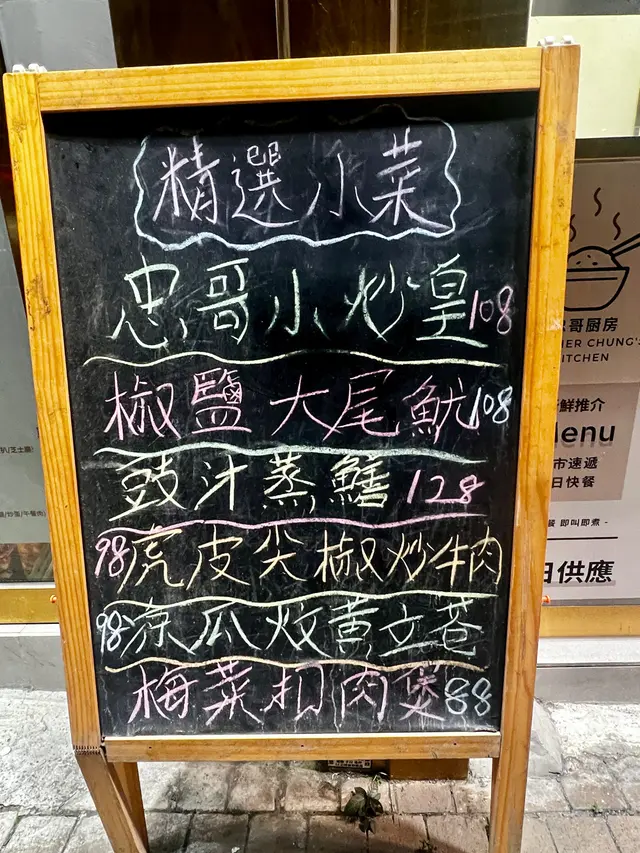 精選小菜
忠哥小炒皇108
椒鹽大尾魷108
豉汁蒸鱔128
98虎皮尖椒炒牛肉
98凉瓜炆黃立苍
梅菜扣肉煲88
哥厨房
CHUNG'S
KITCHEN
鮮推介
Menu
市速遞
日快餐
即叫即煮 -
日供應